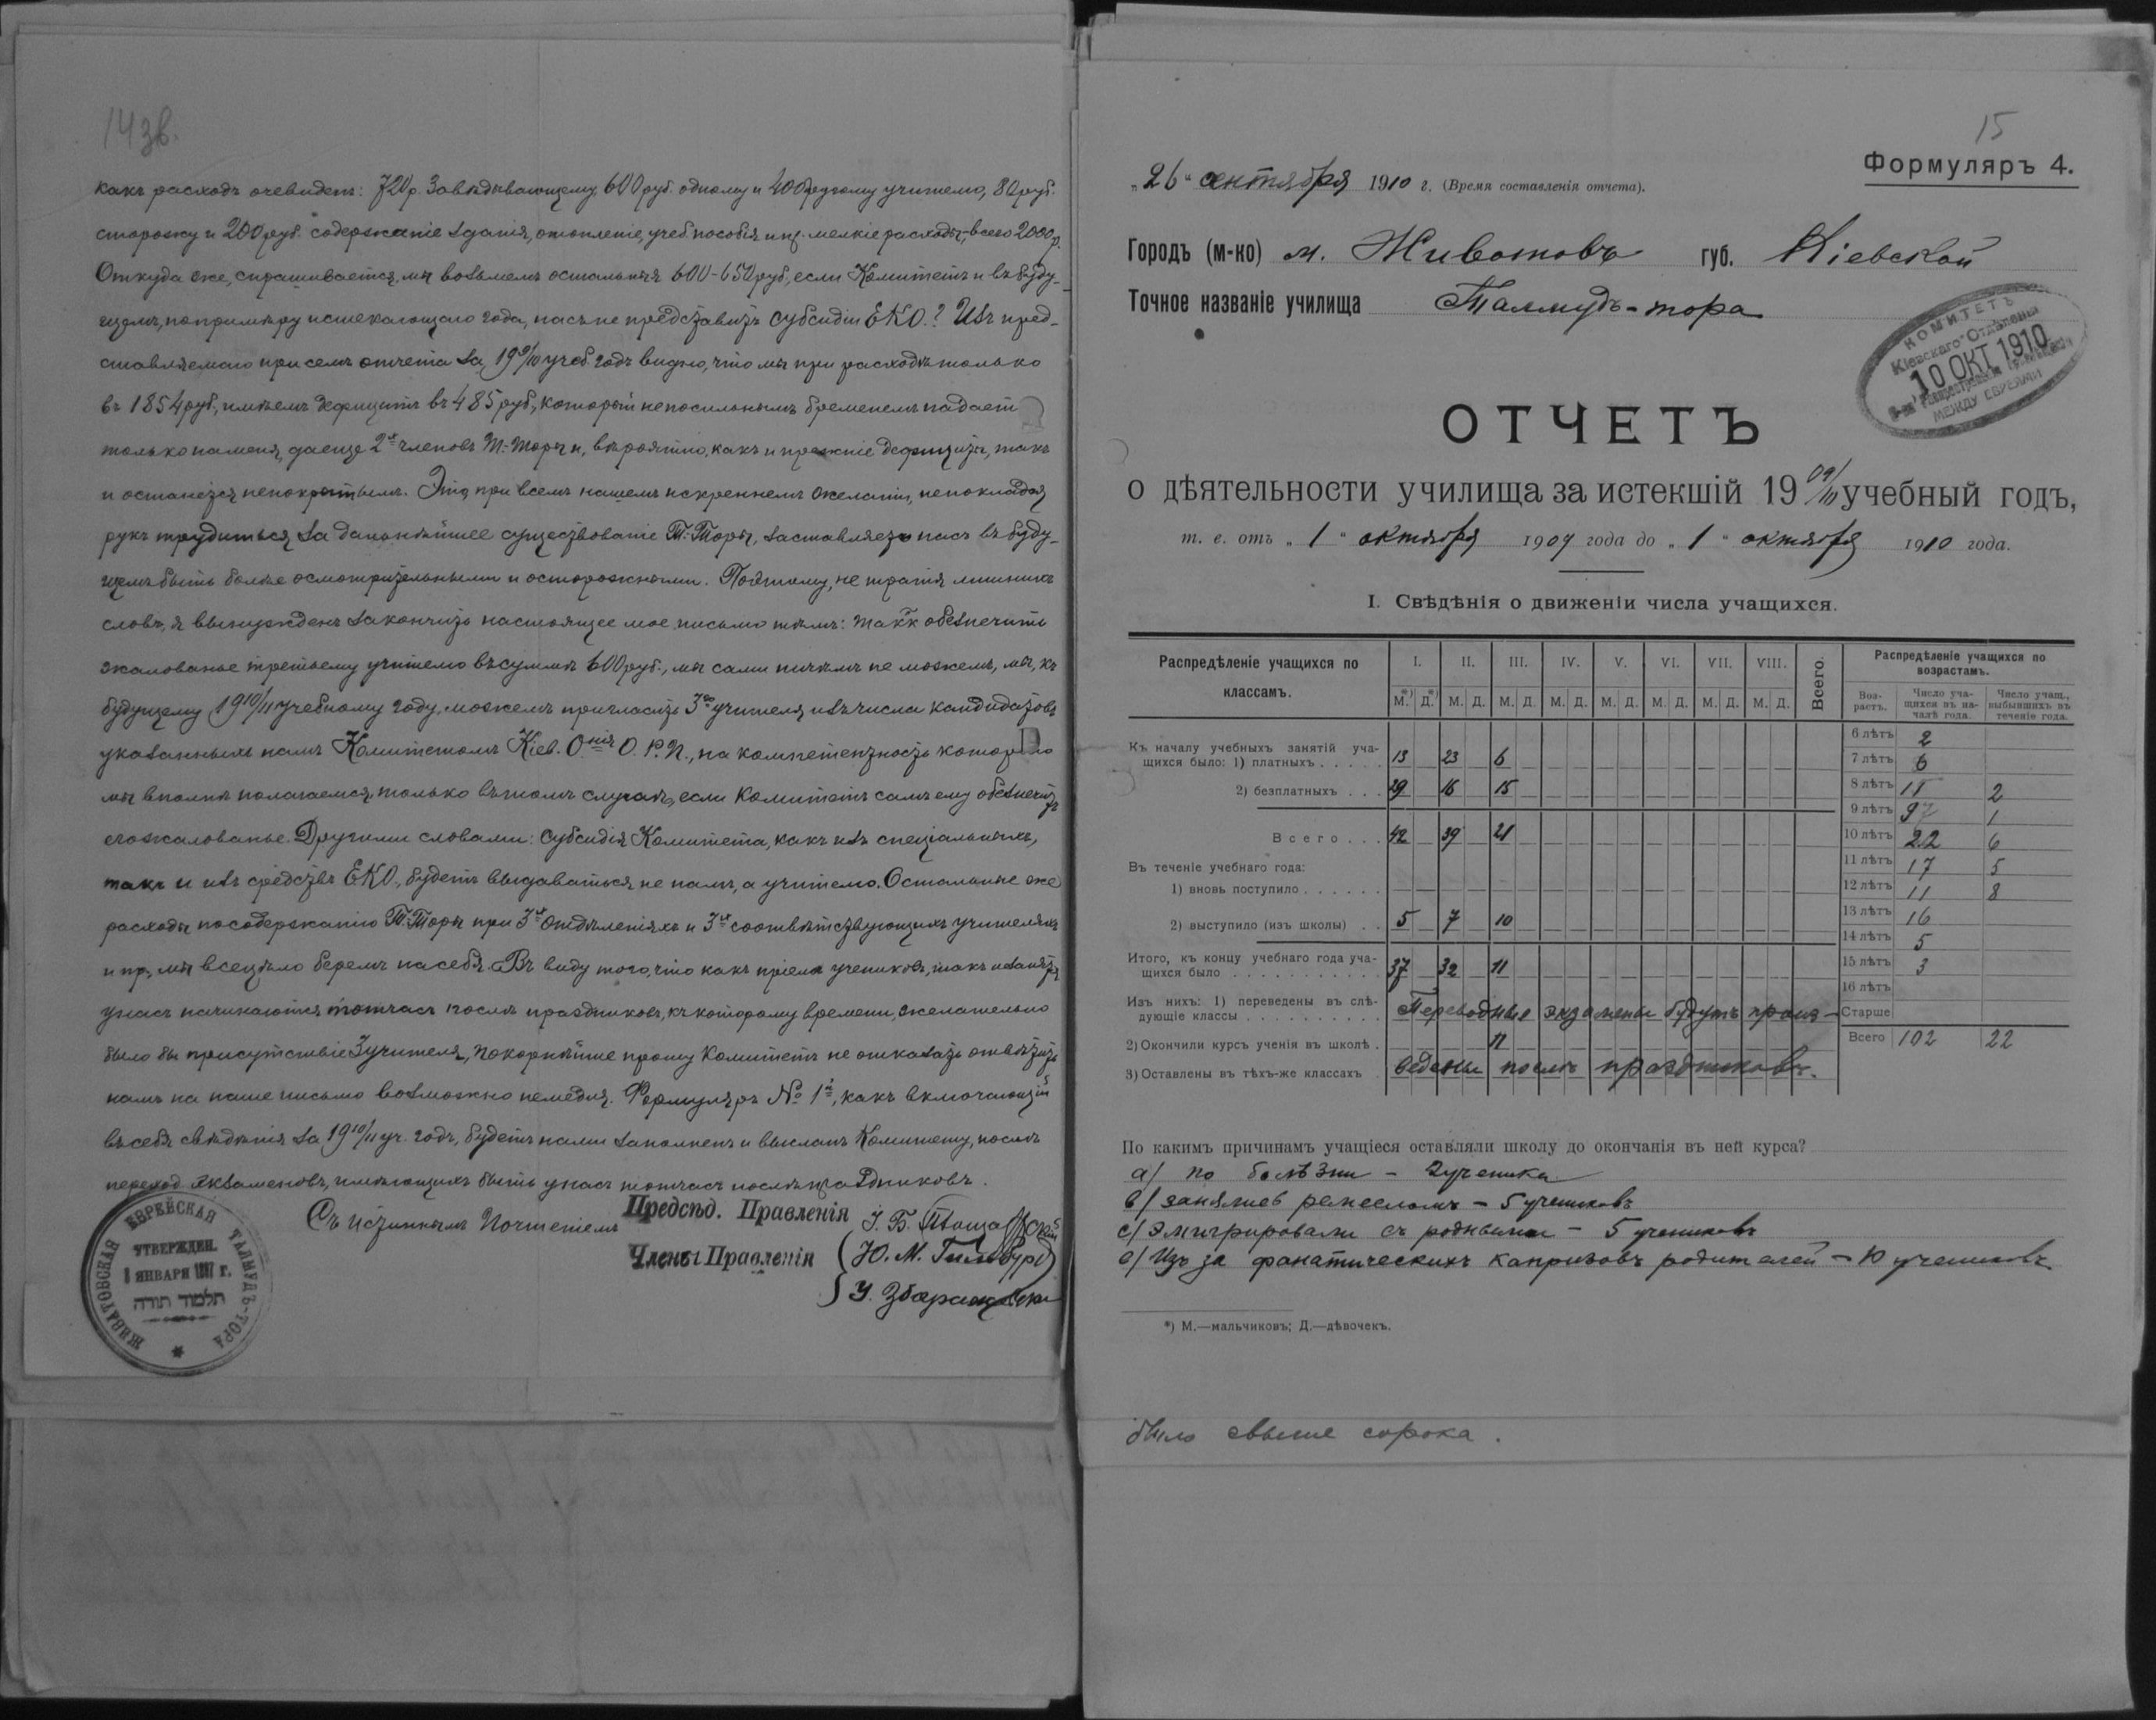 14 зв.
какъ расходъ очевиденъ: 720 р. Завѣдывающему, 600 руб. одному и 400 другому учителю, 80 руб.
сторожу и 200 руб. содержаніе зданія, отопленіе, учеб. пособія и пр. мелкіе расходы,-всего 2000 р.
Откуда же, спрашивается, мы возьмемъ остальныя 600-650 руб., если Комитетъ и въ буду-
щемъ, по примѣру истекающаго года, насъ не представитъ субсидіи ЕКО.? Изъ пред-
ставляемаго при семъ отчета за 19 9/10 учеб. годъ видно, что мы при расходѣ только
въ 1854 руб., имѣемъ дефицитъ въ 485 руб., который непосильнымъ бременемъ падаетъ
только на меня, да еще 2-хъ членовъ Т.-Торы и, вѣроятно, какъ и прежніе дефициты, такъ
и останется непокрытымъ. Это, при всемъ нашемъ искреннемъ желаніи, непокладая
рукъ трудиться за дальнѣйшее существованіе Т.-Торы, заставляетъ насъ въ буду-
щемъ быть болѣе осмотрительными и осторожными. Поэтому, не тратя лишнихъ
словъ, я вынужденъ закончить настоящее мое письмо тѣмъ: такъ к. обезпечить
жалованье третьему учителю въ суммѣ 600 руб., мы сами ничѣмъ не можемъ, мы, къ
будущему 19 10/11 учебному году, можемъ пригласить 3-го учителя изъ числа кандидатовъ
указанныхъ намъ Комитетомъ Кіев. О-нія О. Р. П., на компетентность котораго
мы вполнѣ полагаемся, только въ томъ случаѣ, если Комитетъ самъ ему обезпечитъ
его жалованье. Другими словами: субсидія Комитета, какъ изъ спеціальныхъ,
такъ и изъ средствъ ЕКО, будетъ выдаваться не намъ, а учителю. Остальные же
расходы по содержанію Т.-Торы при 3-хъ отдѣленіяхъ и 3-хъ соотвѣтствующихъ учителяхъ
и пр, мы всецѣло беремъ на себя. Въ виду того, что какъ пріемъ учениковъ, такъ и занятія
у насъ начинаются тотчасъ послѣ праздниковъ, къ которому времени, желательно
было бы присутствіе 3 учителя, покорнѣйше прошу Комитетъ не отказать отвѣтить
намъ на наше письмо возможно немедля. Формуляръ № 1-й, какъ включающій
въ себя свѣдѣнія за 19 10/11 уч. годъ, будетъ нами заполненъ и высланъ Комитету, послѣ
переход. экзаменовъ, имѣющихъ быть у насъ тотчасъ послѣ праздниковъ.
Съ истиннымъ Почтеніемъ
Предсѣд. Правленія
Члены Правленія
Ю. М. Гильбургъ
У. Збаражскій
ЖИВАТОВСКАЯ ЕВРЕЙСКАЯ ТАЛМУДЪ-ТОРА
УТВЕРЖДЕН.
ЯНВАРЯ
תלמוד תורה
15
Формуляръ 4.
„26“ сентября 1910 г. (Время составленія отчета).
Городъ (м-ко) м. Животовъ губ. Кіевской
Точное названіе училища Талмудъ-тора
КОМИТЕТЪ
Кіевскаго Отдѣленія
10 ОКТ. 1910
МЕЖДУ ЕВРЕЯМИ
ОТЧЕТЪ
о дѣятельности училища за истекшій 19 09/10 учебный годъ,
т. е. отъ „1“ октября 1909 года до „1“ октября 1910 года.
I. Свѣдѣнія о движеніи числа учащихся.
Распредѣленіе учащихся по классамъ. I. II. III. IV. V. VI. VII. VIII. Всего.
М.*) Д.*) М. Д. М. Д. М. Д. М. Д. М. Д. М. Д. М. Д.
Къ началу учебныхъ занятій уча-
щихся было: 1) платныхъ . . . . . 13 23 6
2) безплатныхъ . . . 29 16 15
Всего . . . 42 39 21
Въ теченіе учебнаго года:
1) вновь поступило . . . . . .
2) выступило (изъ школы) . . 5 7 10
Итого, къ концу учебнаго года уча-
щихся было . . . . . . . . . . . 37 32 11
Изъ нихъ: 1) переведены въ слѣ-
дующіе классы . . . . . . . . . . Переводные экзамены будутъ произ-
2) Окончили курсъ ученія въ школѣ . 11
3) Оставлены въ тѣхъ-же классахъ ведены послѣ праздниковъ.
Распредѣленіе учащихся по возрастамъ.
Воз-растъ. Число уча-щихся въ на-чалѣ года. Число учащ., выбывшихъ въ теченіе года.
6 лѣтъ 2
7 лѣтъ 6
8 лѣтъ 11 2
9 лѣтъ 97 1
10 лѣтъ 22 6
11 лѣтъ 17 5
12 лѣтъ 11 8
13 лѣтъ 16
14 лѣтъ 5
15 лѣтъ 3
16 лѣтъ
Старше
Всего 102 22
По какимъ причинамъ учащіеся оставляли школу до окончанія въ ней курса?
а/ по болѣзни - 2 ученика
в/ занялись ремесломъ - 5 учениковъ
с/ эмигрировали съ родными - 5 учениковъ
е/ Изъ за фанатическихъ капризовъ родителей - 10 учениковъ
*) М.—мальчиковъ; Д.—дѣвочекъ.
было свыше сорока.